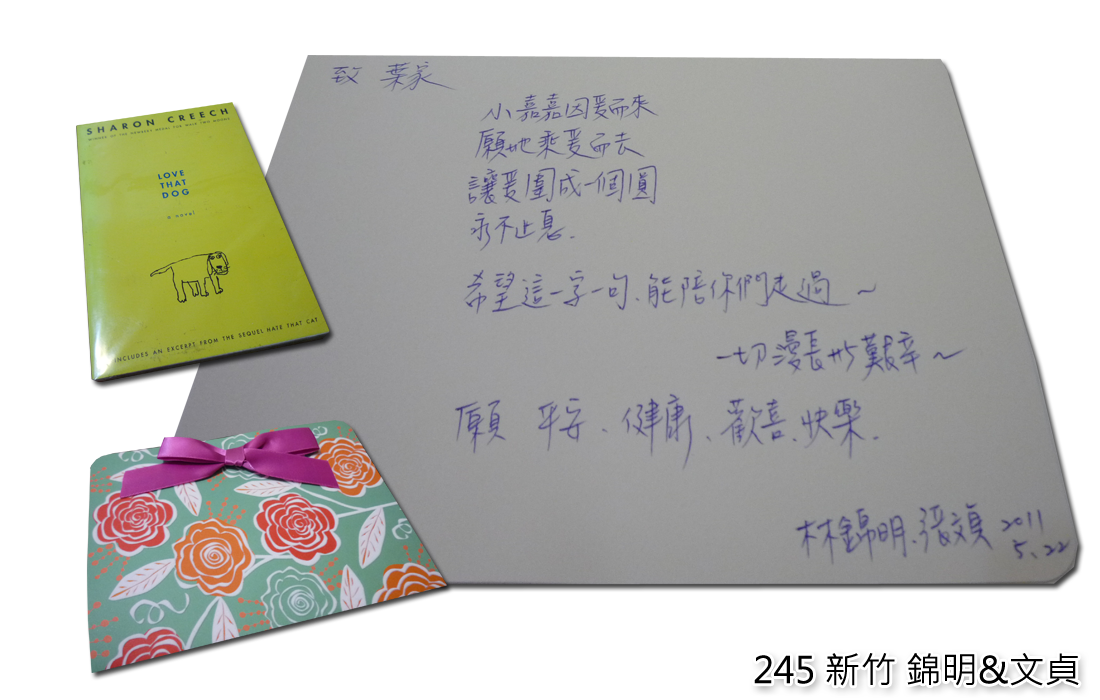 SHARON CREECH
WINNER OF THE NEWBERY MEDAL FOR WALK TWO MOONS
LOVE
THAT
DOG
a novel
INCLUDES AN EXCERPT FROM THE SEQUEL HATE THAT CAT
致 葉家
小嘉嘉因愛而來
願她乘愛而去
讓愛圍成一個圓
永不止息.
希望這一字一句、能陪你們走過~
一切漫長的艱辛~
願 平安、健康、歡喜、快樂.
林錦明、張文貞 2011
5、22
245 新竹 錦明&文貞